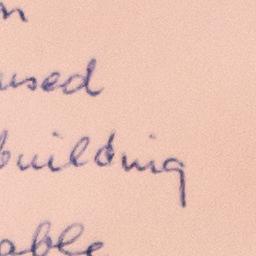 used
building
able